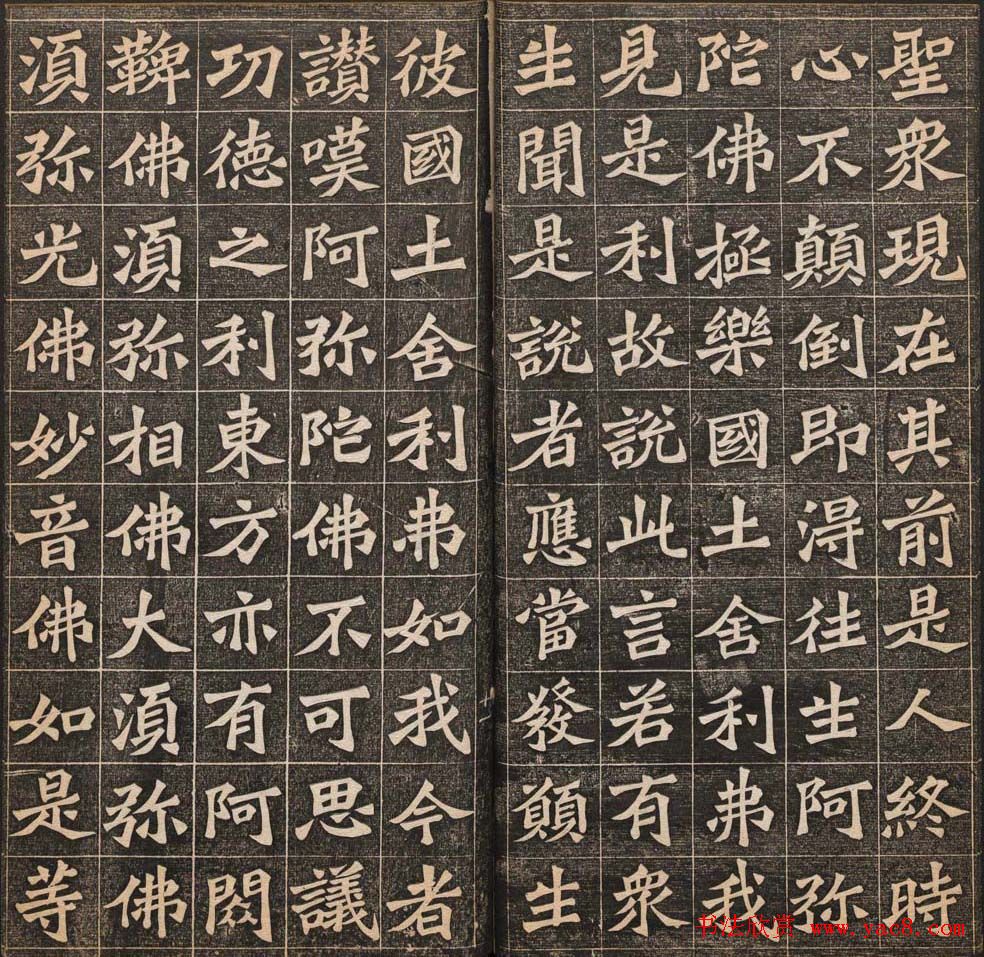 聖衆現在其前是人終時
心不顛倒即淂往生阿弥
陀佛極樂國土舍利弗我
見是利故説此言若有衆
生聞是説者應當發願生
彼國土舍利弗如我今者
讃嘆阿弥陀佛不可思議
功德之利東方亦有阿閦
鞞佛湏弥相佛大湏弥佛
湏弥光佛妙音佛如是等
书法欣赏 www.yac8.com